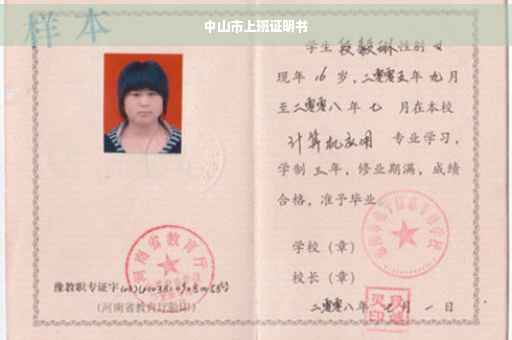 中山市上班证明书
样本
学生 段毅琳 性别 女
现年 16 岁，二零零五年 九 月
至二零零八年 七 月在本校
计算机应用 专业学习，
学制 三 年，修业期满，成绩
合格，准予毕业。
学校（章）
校长（章）
二零零八年 七 月 一 日
河南省教育厅
豫教职专证字
（河南省教育厅验印）